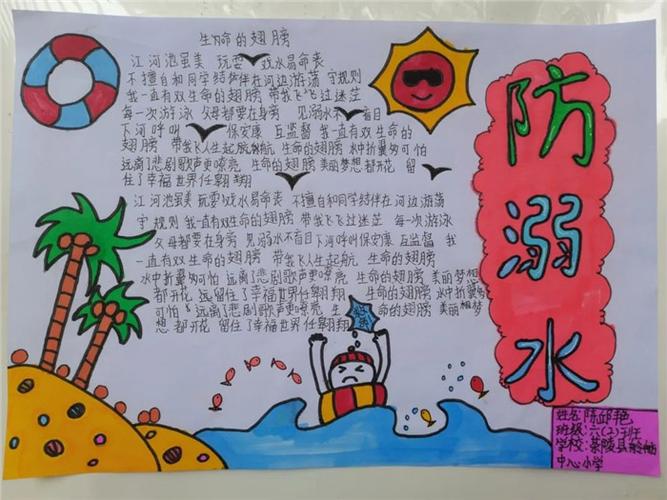 生命的翅膀
江河池虽美 玩耍 戏水易命丧
不擅自和同学结伴伴在河边游荡 守规则
我一直有双生命的翅膀 带我飞飞过迷茫
每一次游泳 父母都要在身旁 见溺水不盲目
下河呼叫 保安康 互监督 我一直有双生命的
翅膀 带我飞人生起航航 生命的翅膀 水中折翼匆可怕
远离了悲剧歌声更嘹亮 生命的翅膀 美丽梦想 都开花 留
住了幸福世界任翱翔
江河池虽美 玩耍戏水易命丧 不擅自和同学结伴在河边游荡
守规则 我一直有双生命的翅膀 带我飞飞过迷茫 每一次游泳
父母都要在身旁 见溺水不盲目下河呼叫保安康 互监督 我
一直有双生命的翅膀 带我飞人生起航 生命的翅膀
水中折翼匆可怕 远离了悲剧歌声更嘹亮 生命的翅膀 美丽梦想
都开花 远留住了幸福世界任翱翔 生命的翅膀 水中折翼匆
可怕 远离了悲剧歌声更嘹亮 生 命的翅膀 美丽梦
想 都开花 留住了幸福世界任翱翔
防溺水
姓名:陈邱艳
班级:六(2)班
学校:茶陵县
中心小学